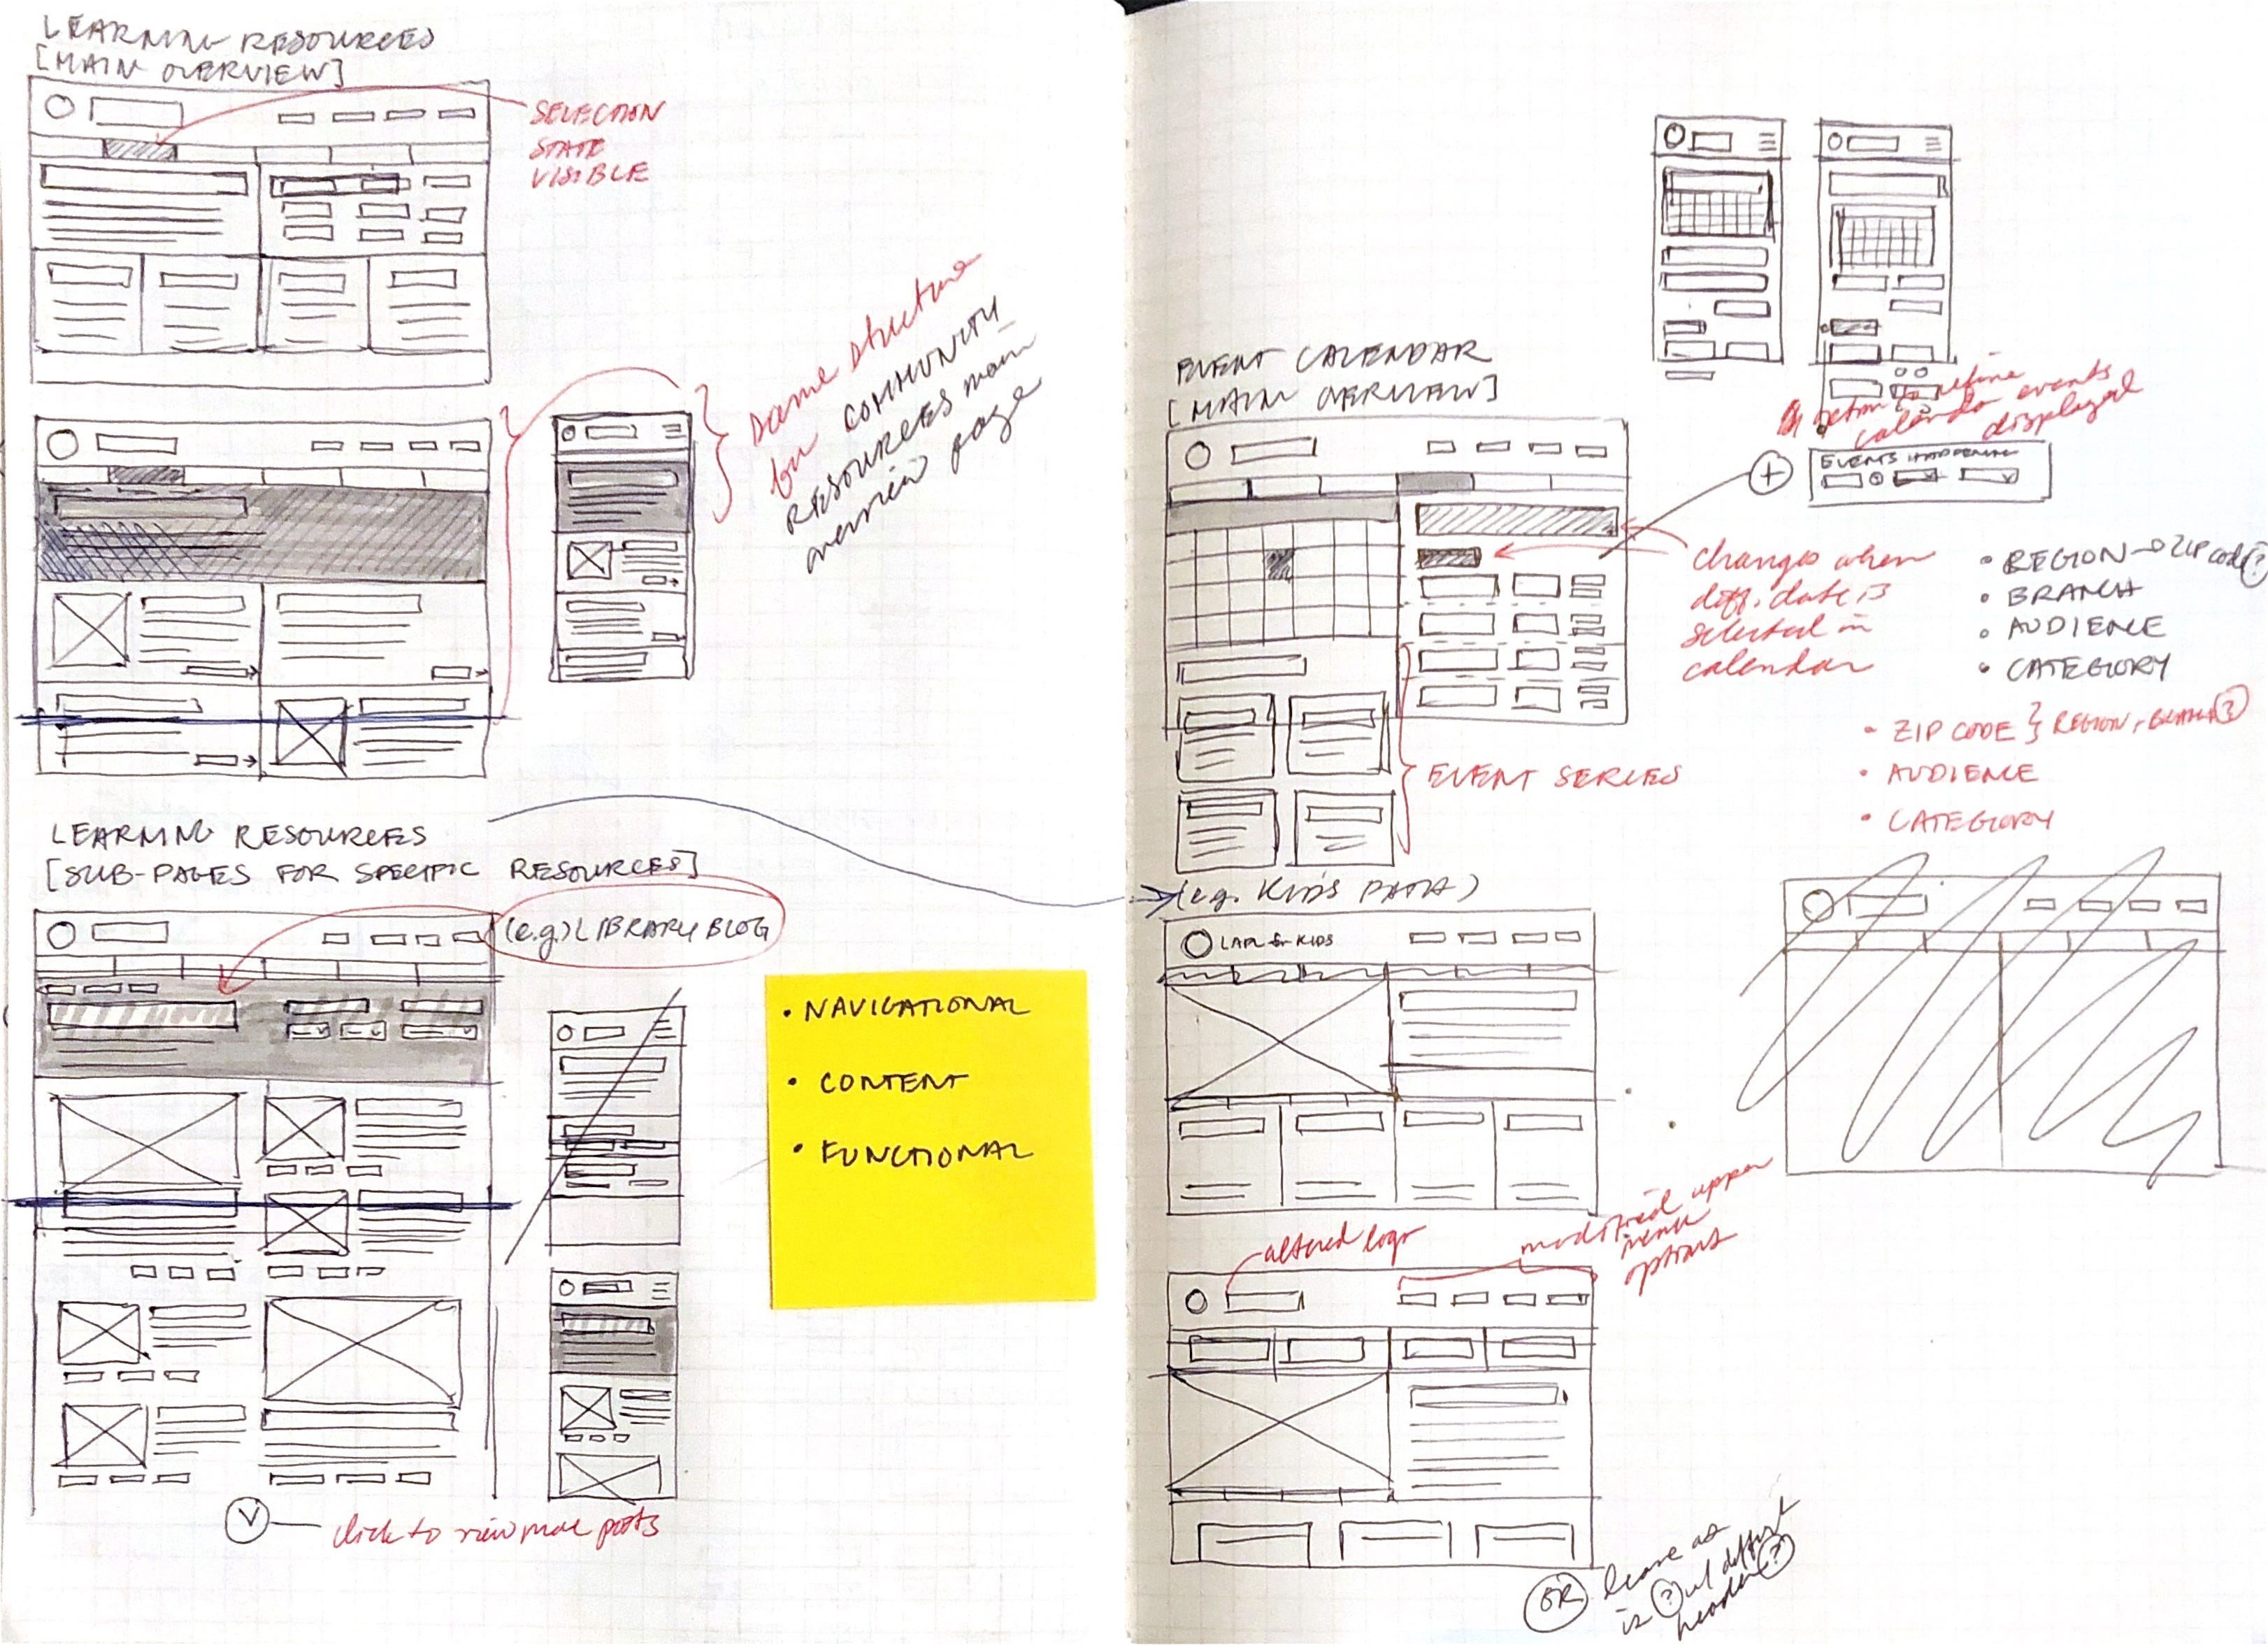 LEARNING RESOURCES
[MAIN OVERVIEW]
SELECTION
STATE
VISIBLE
same structure
for COMMUNITY
RESOURCES main
overview page
LEARNING RESOURCES
[SUB-PAGES FOR SPECIFIC RESOURCES]
(e.g.) LIBRARY BLOG
• NAVIGATIONAL
• CONTENT
• FUNCTIONAL
V
click to view more posts
EVENT CALENDAR
[MAIN OVERVIEW]
to refine
calendar events
displayed
+
EVENTS HAPPENING
changes when
diff. date is
selected in
calendar
• REGION → ZIP code (?)
• BRANCH
• AUDIENCE
• CATEGORY
• ZIP CODE } REGION, BRANCH (?)
• AUDIENCE
• CATEGORY
EVENT SERIES
(e.g. KIDS PATH)
LAPL for KIDS
altered logo
modified upper
menu
options
OR leave as
is (?) w/ different
header (?)